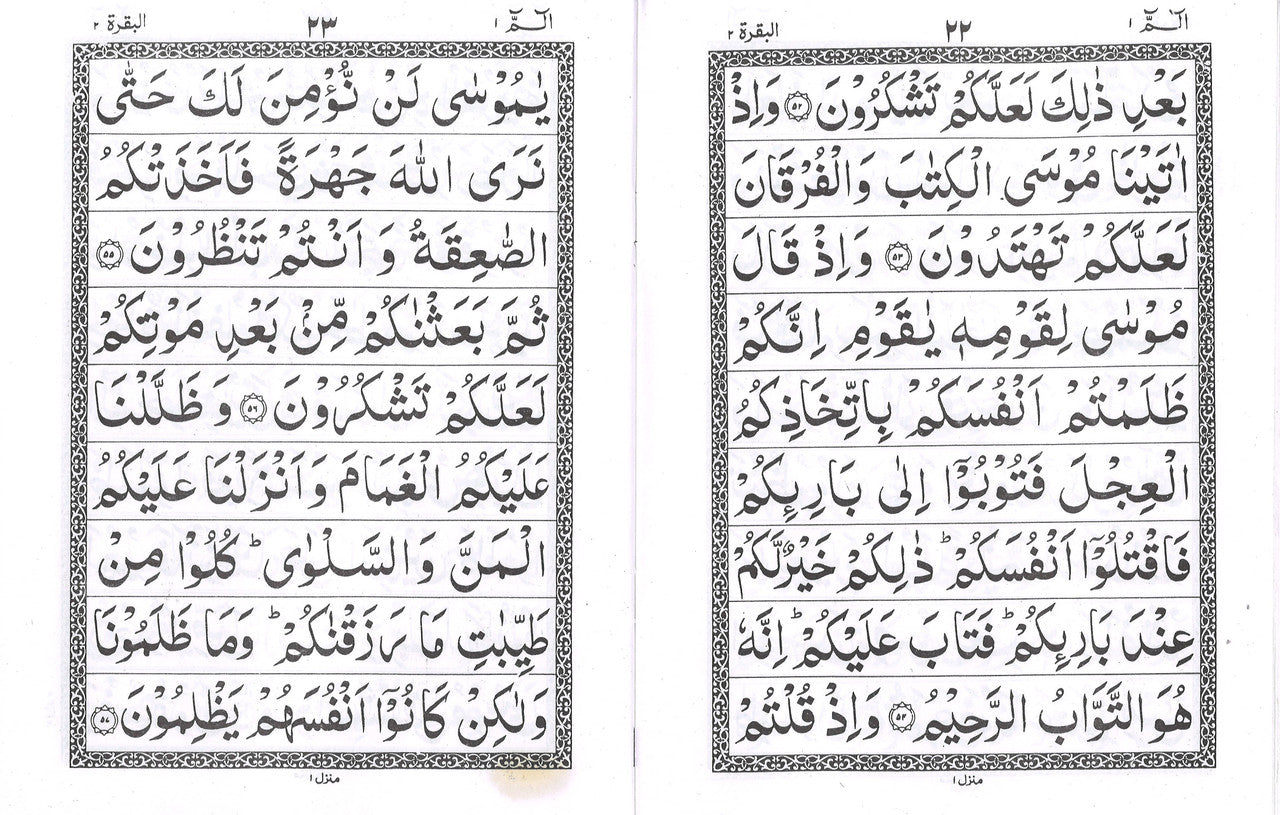 الٓمّٓ ١ ٢٢ البقرة ٢
بَعْدِ ذٰلِكَ لَعَلَّكُمْ تَشْكُرُوْنَ ۝٥٢ وَاِذْ
اٰتَيْنَا مُوْسَى الْكِتٰبَ وَالْفُرْقَانَ
لَعَلَّكُمْ تَهْتَدُوْنَ ۝٥٣ وَاِذْ قَالَ
مُوْسٰى لِقَوْمِهٖ يٰقَوْمِ اِنَّكُمْ
ظَلَمْتُمْ اَنْفُسَكُمْ بِاتِّخَاذِكُمُ
الْعِجْلَ فَتُوْبُوْۤا اِلٰى بَارِىِٕكُمْ
فَاقْتُلُوْۤا اَنْفُسَكُمْ ؕ ذٰلِكُمْ خَيْرٌ لَّكُمْ
عِنْدَ بَارِىِٕكُمْ ؕ فَتَابَ عَلَيْكُمْ ؕ اِنَّهٗ
هُوَ التَّوَّابُ الرَّحِيْمُ ۝٥٤ وَاِذْ قُلْتُمْ
منزل ١
الٓمّٓ ١ ٢٣ البقرة ٢
يٰمُوْسٰى لَنْ نُّؤْمِنَ لَكَ حَتّٰى
نَرَى اللّٰهَ جَهْرَةً فَاَخَذَتْكُمُ
الصّٰعِقَةُ وَ اَنْتُمْ تَنْظُرُوْنَ ۝٥٥
ثُمَّ بَعَثْنٰكُمْ مِّنْۢ بَعْدِ مَوْتِكُمْ
لَعَلَّكُمْ تَشْكُرُوْنَ ۝٥٦ وَ ظَلَّلْنَا
عَلَيْكُمُ الْغَمَامَ وَ اَنْزَلْنَا عَلَيْكُمُ
الْمَنَّ وَالسَّلْوٰى ؕ كُلُوْا مِنْ
طَيِّبٰتِ مَا رَزَقْنٰكُمْ ؕ وَمَا ظَلَمُوْنَا
وَلٰكِنْ كَانُوْۤا اَنْفُسَهُمْ يَظْلِمُوْنَ ۝٥٧
منزل ١